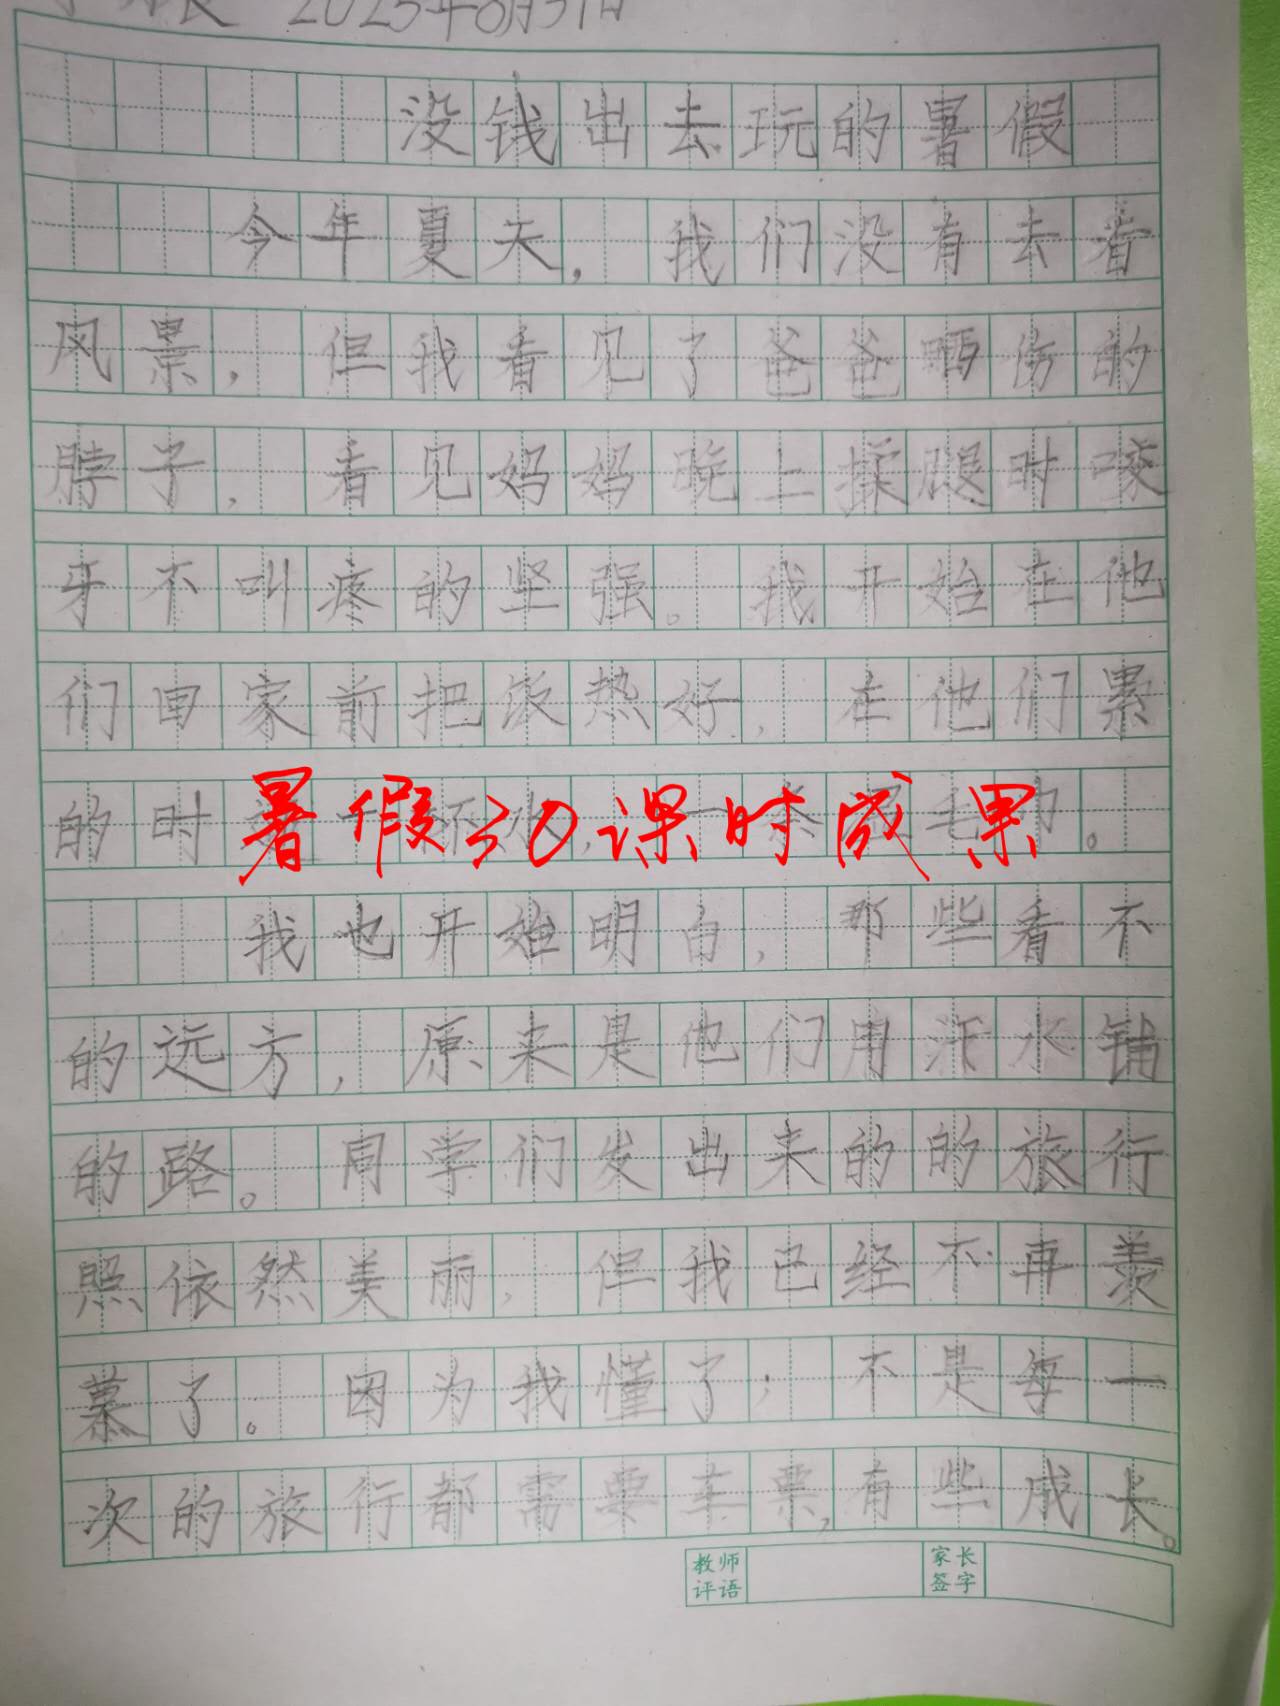 2025年8月31日
没钱出去玩的暑假
今年夏天,我们没有去看
风景,但我看见了爸爸晒伤的
脖子,看见妈妈晚上揉腿时咬
牙不叫疼的坚强。我开始在他
们回家前把饭热好,在他们累
的时 水, 一条 毛巾。
暑假30课时成果
我也开始明白,那些看不
的远方,原来是他们用汗水铺
的路。同学们发出来的的旅行
照依然美丽,但我已经不再羡
慕了。因为我懂了,不是每一
次的旅行都需要车票,有些成长。
教师评语
家长签字